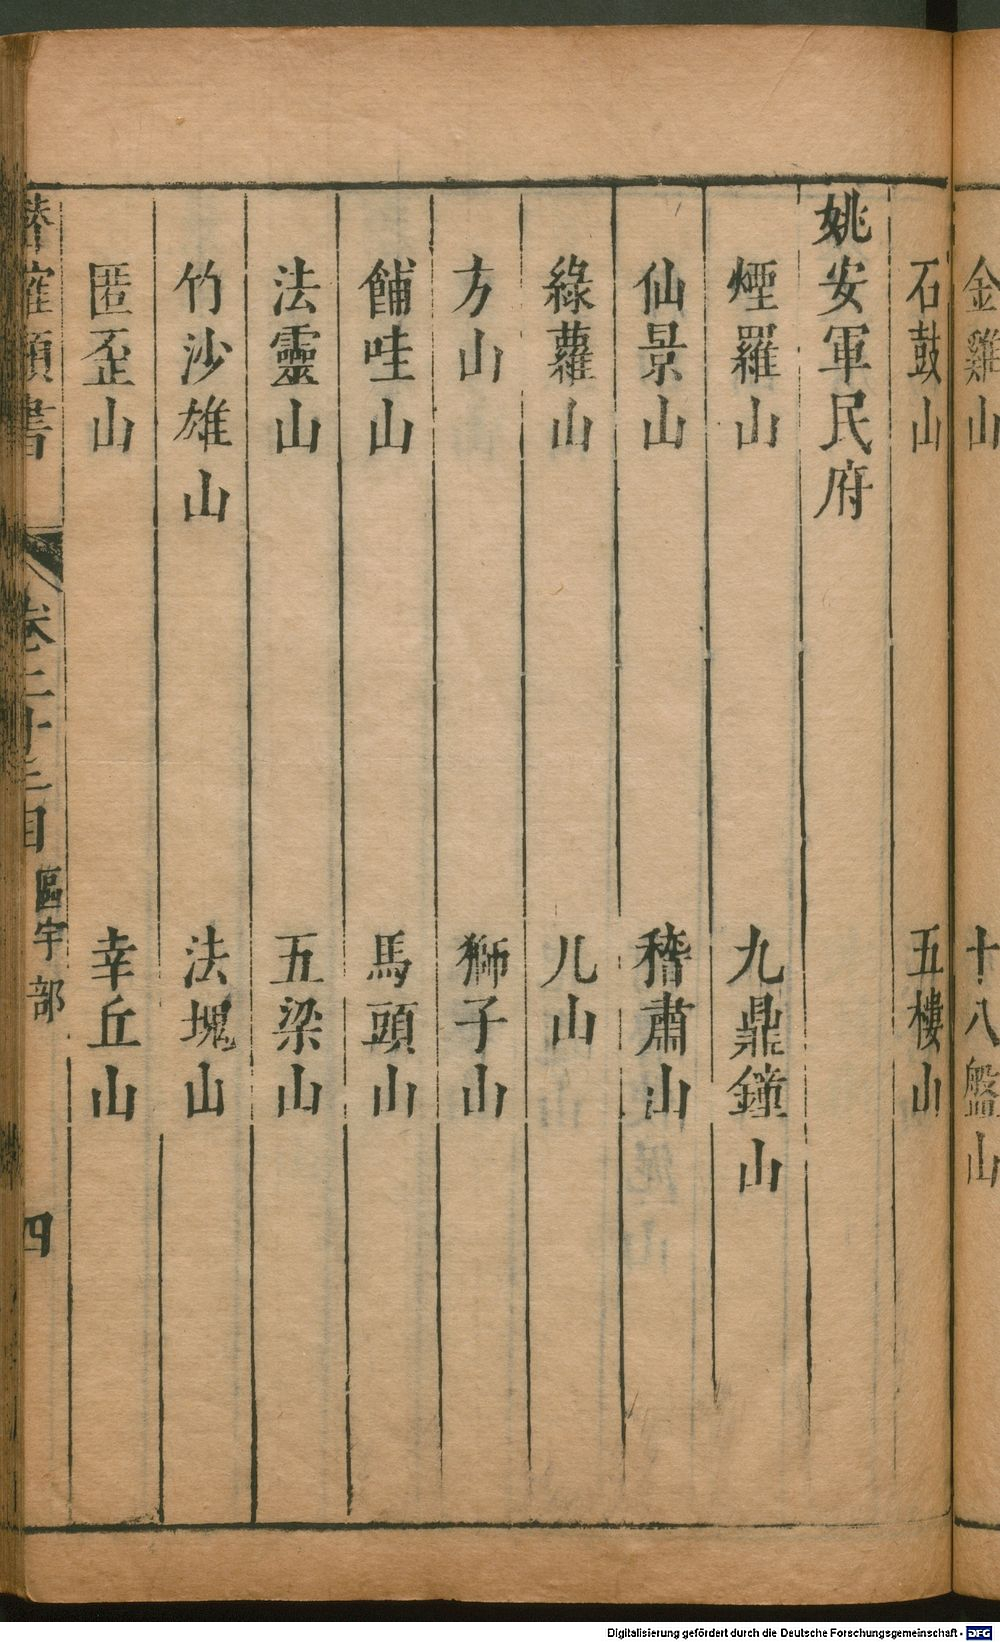 金雞山　十八盤山
石鼓山　五樓山
姚安軍民府
煙羅山　九鼎鐘山
仙景山　稽肅山
綠蘿山　儿山
方山　獅子山
餔哇山　馬頭山
法靈山　五梁山
竹沙雄山　法塊山
匿歪山　幸丘山
類書　卷二十三目　區宇部　四
Digitalisierung gefördert durch die Deutsche Forschungsgemeinschaft - DFG